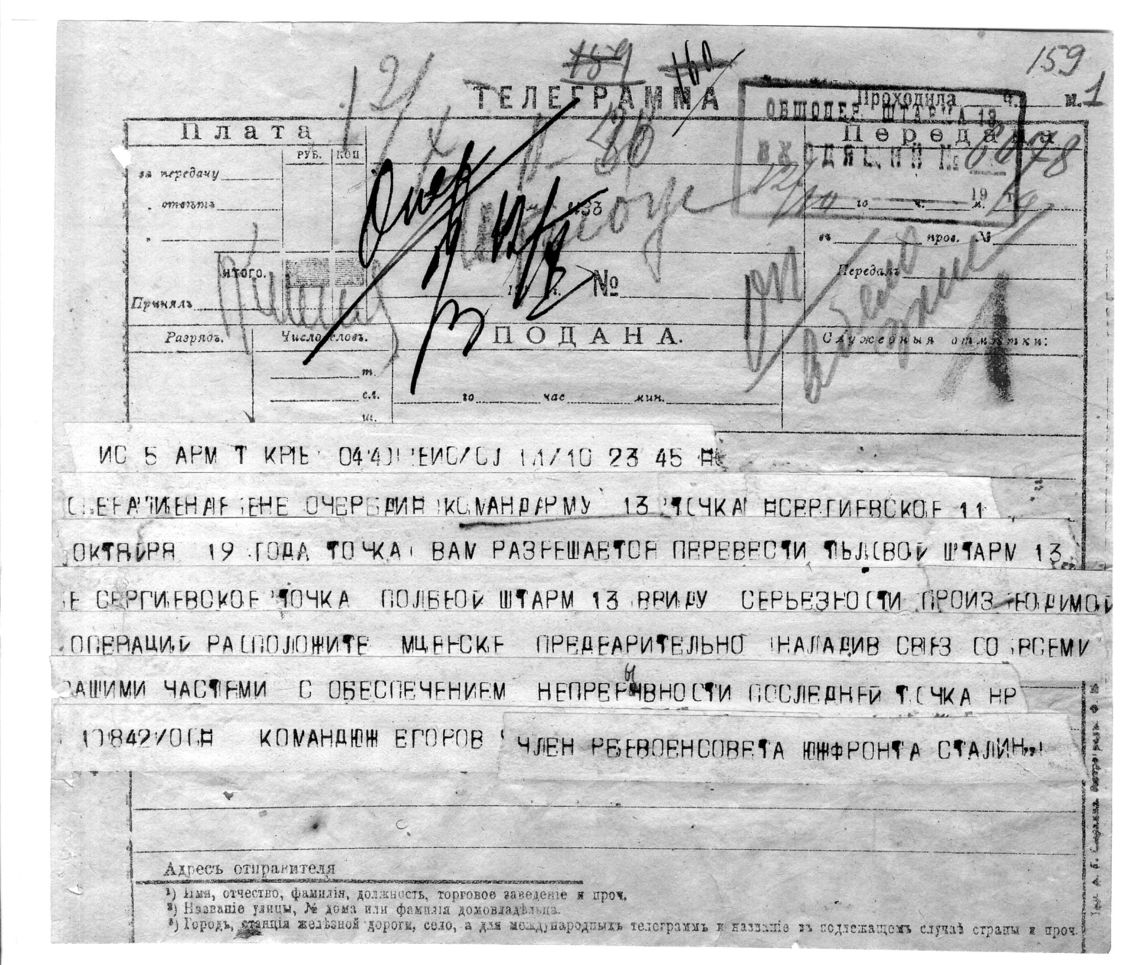 159
189
160
12/X
11-30
ТЕЛЕГРАММА
Проходила ч. м. 1
ОБЩОПЕР. ШТАРМА 13
ВХОДЯЩИЙ №
12/10 19 19 г.
Плата
Передача
РУБ. КОП
за передачу
" отвѣтъ
"
изъ
въ пров. №
ИТОГО.
№
Передалъ
Принялъ
Разрядъ.
Число словъ.
ПОДАНА.
Служебныя отмѣтки:
т.
сл.
ш.
го час мин.
ИС 5 АРМ Т 11/10 23 45
ОЧЕРЕДИ КОМАНДАРМУ 13 ТОЧКА СЕРГИЕВСКОЕ 11
ОКТЯБРЯ 19 ГОДА ТОЧКА ВАМ РАЗРЕШАЕТСЯ ПЕРЕВЕСТИ ТЫЛОВОЙ ШТАРМ 13
СЕРГИЕВСКОЕ ТОЧКА ПОЛЕВОЙ ШТАРМ 13 ВВИДУ СЕРЬЕЗНОСТИ ПРОИЗВОДИМОЙ
ОПЕРАЦИИ РАСПОЛОЖИТЕ МЦЕНСКЕ ПРЕДВАРИТЕЛЬНО НАЛАДИВ СВЯЗ СО ВСЕМИ
ВАШИМИ ЧАСТЯМИ С ОБЕСПЕЧЕНИЕМ НЕПРЕРЫВНОСТИ ПОСЛЕДНЕЙ ТОЧКА НР
10842/ОП КОМАНДЮЖ ЕГОРОВ ЧЛЕН РЕВВОЕНСОВЕТА ЮЖФРОНТА СТАЛИН
Адресъ отправителя
¹) Имя, отчество, фамилія, должность, торговое заведеніе и проч.
²) Названіе улицы, № дома или фамилія домовладѣльца.
³) Городъ, станція желѣзной дороги, село, а для международныхъ телеграммъ и названіе въ подлежащемъ случаѣ страны и проч.